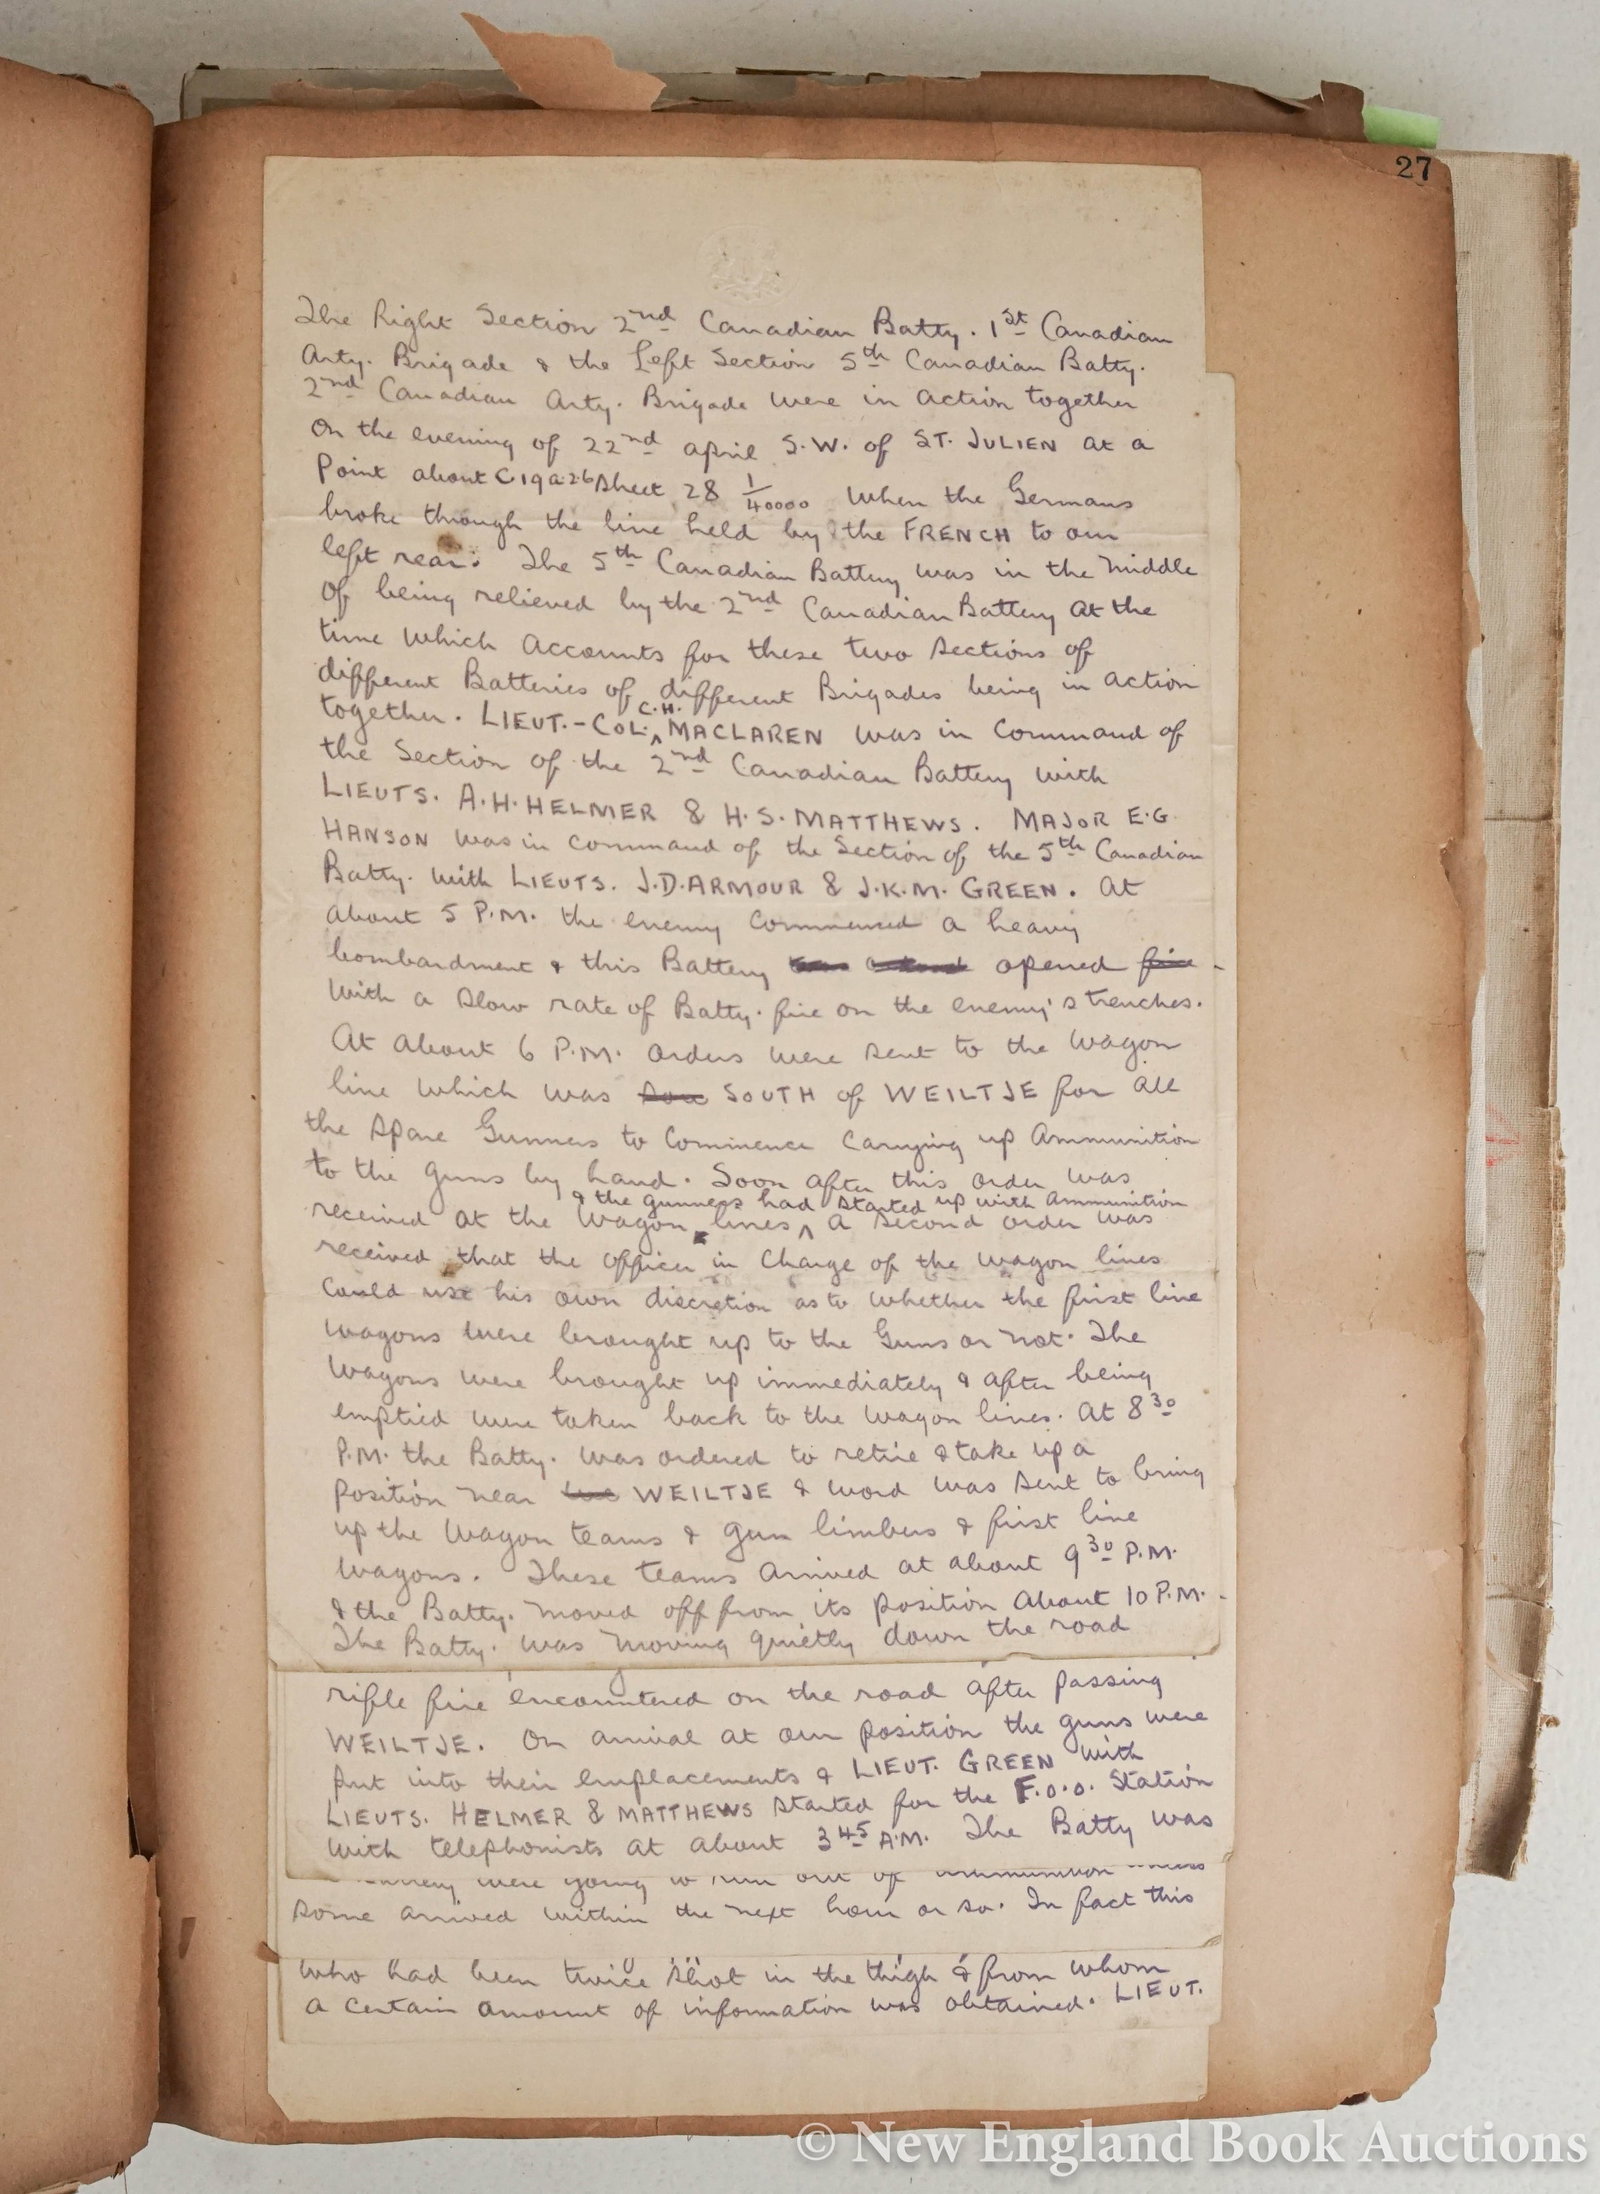 27
The Right Section 2nd Canadian Batty. 1st Canadian
Arty. Brigade & the Left Section 5th Canadian Batty.
2nd Canadian Arty. Brigade were in action together
on the evening of 22nd April S.W. of ST. JULIEN at a
Point about C19a26 Sheet 28 1/40000 when the Germans
broke through the line held by the FRENCH to our
left rear. The 5th Canadian Battery was in the middle
of being relieved by the 2nd Canadian Battery at the
time which accounts for these two sections of
different Batteries of different Brigades being in action
together. LIEUT.-COL. C.H. MACLAREN was in command of
the Section of the 2nd Canadian Battery with
LIEUTS. A.H. HELMER & H.S. MATTHEWS. MAJOR E.G.
HANSON was in command of the Section of the 5th Canadian
Batty. with LIEUTS. J.D. ARMOUR & J.K.M. GREEN. At
about 5 P.M. the enemy commenced a heavy
bombardment & this Battery opened fire
with a slow rate of Batty. fire on the enemy's trenches.
At about 6 P.M. orders were sent to the wagon
line which was SOUTH of WEILTJE for all
the spare Gunners to commence carrying up ammunition
to the guns by hand. Soon after this order was
& the gunners had started up with ammunition
received at the wagon lines ^ a second order was
received that the officer in charge of the wagon lines
could use his own discretion as to whether the first line
wagons were brought up to the Guns or not. The
wagons were brought up immediately & after being
emptied were taken back to the wagon lines. At 8 30
P.M. the Batty. was ordered to retire & take up a
position near WEILTJE & word was sent to bring
up the wagon teams & gun limbers & first line
wagons. These teams arrived at about 9 30 P.M.
& the Batty. moved off from its position about 10 P.M.
The Batty. was moving quietly down the road
rifle fire encountered on the road after passing
WEILTJE. On arrival at our position the guns were
put into their emplacements & LIEUT. GREEN with
LIEUTS. HELMER & MATTHEWS started for the F.O.O. Station
with telephonists at about 3 45 A.M. The Batty was
were going to run out of ammunition unless
some arrived within the next hour or so. In fact this
who had been twice shot in the thigh & from whom
a certain amount of information was obtained. LIEUT.
© New England Book Auctions